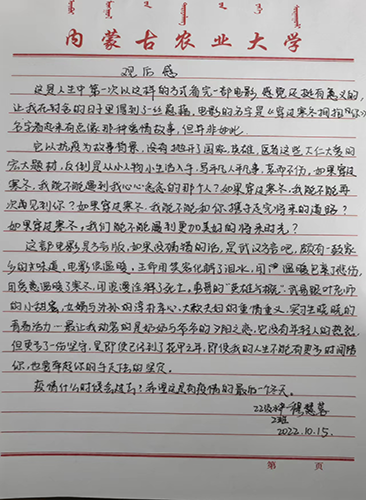 内蒙古农业大学
观后感
这是人生中第一次以这样的方式看完一部电影，感觉还挺有意义的，
让我在封名的日子里得到了一丝慰藉，电影的名字是《穿过寒冬拥抱你》
名字看起来有点像那种爱情故事，但并非如此。
它以抗疫为故事背景，没有抛开了国家英雄，医者这些大仁大义的
宏大题材，反倒是从小人物小生活入手，写平凡人平凡事，哀而不伤，如果穿过
寒冬，我能不能遇到我心心念念的那个人？如果穿过寒冬，我能不能再
次再见到你？如果穿过寒冬，我能不能和你携手走完将来的道路？
如果穿过寒冬，我们能不能遇到更加美好的将来时光？
这部电影是方言版，如果没猜错的话，是武汉方言吧，颇有一种家
乡的味道，电影很温暖，生命用笑容化解了泪水，用温暖包裹了悲伤，
用炙热温暖了寒冬，用浪漫诠释了死亡。勇哥的“英雄	”，武哥跟叶老师
的小甜蜜，女婿与外孙的淳朴孝心，大款夫妇的重情重义，实习生晓晓的
青春活力…最让我动容的是奶奶与爷爷的夕阳之恋，它没有年轻人的轰烈，
但更多了一份坚守，是即使已经到了花甲之年，即使我的人生不能有更多时间陪
你，也要牵起你的手走过的坚定。
疫情什么时候会过去？希望这是有疫情的最后一个冬天。
22级	穆慧蓉
2班
2022.10.15.
第 页